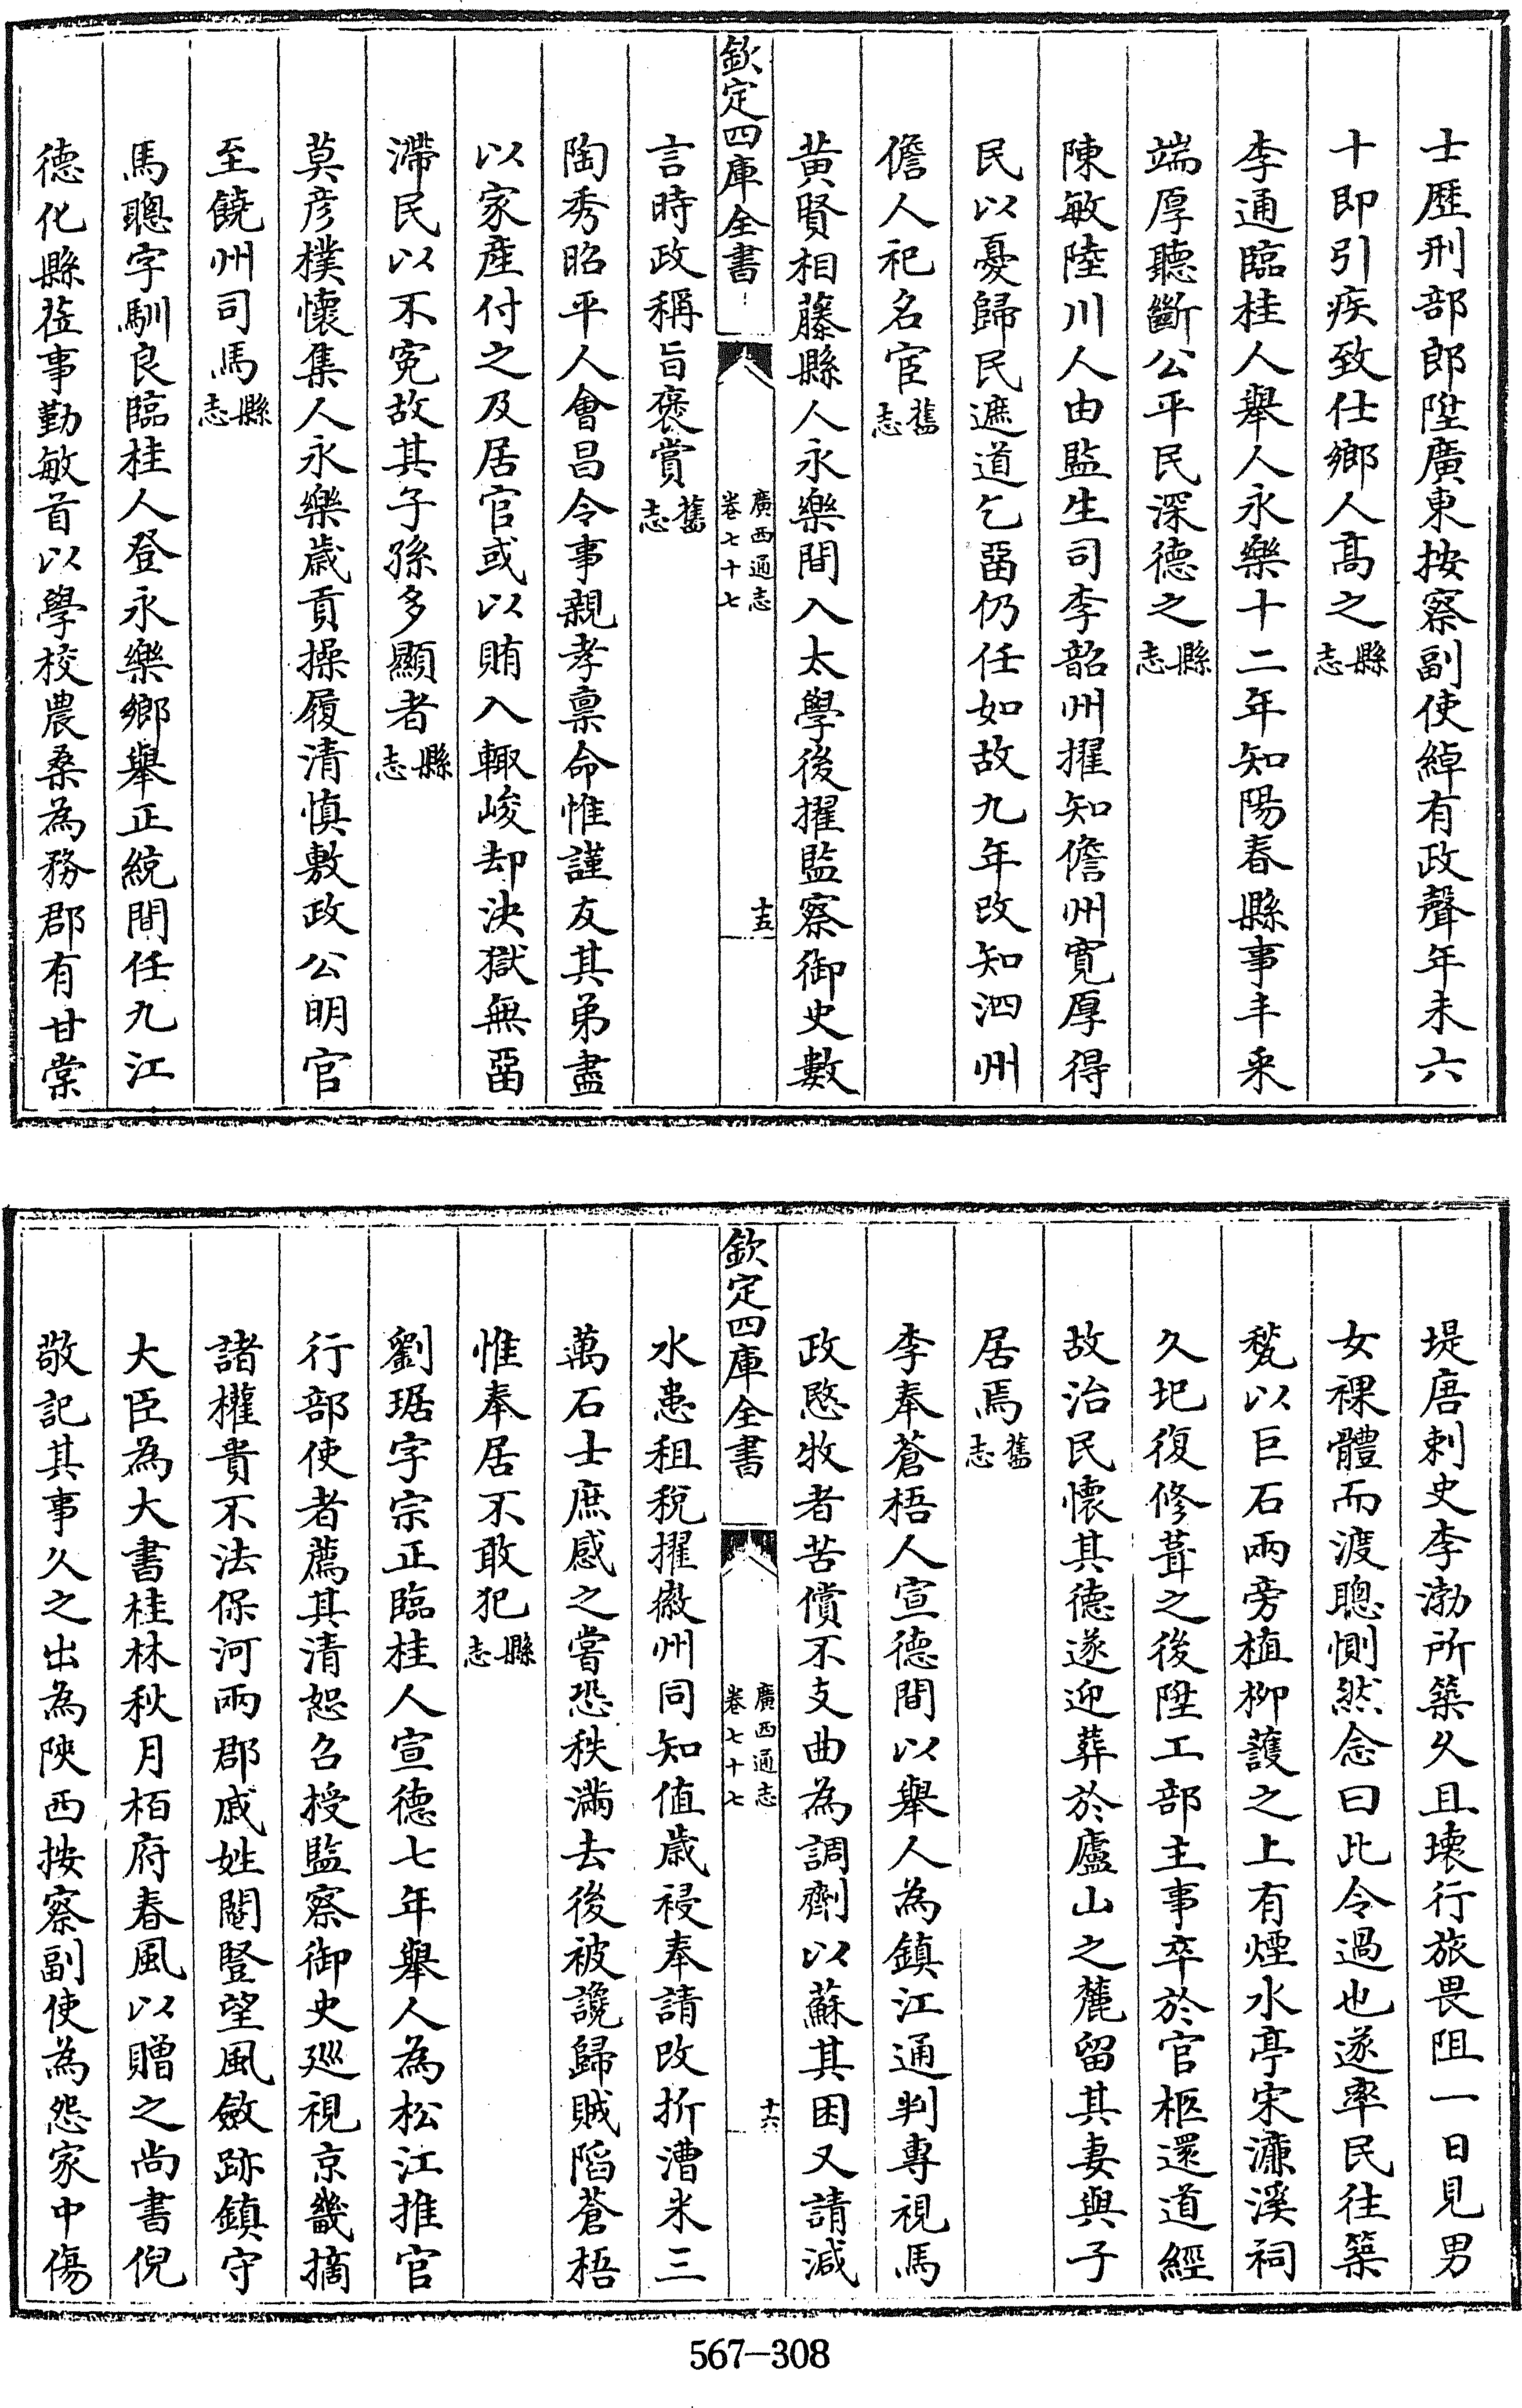 士歷刑部郎陞廣東按察副使綽有政聲年未六
十即引疾致仕鄉人高之縣志
李通臨桂人舉人永樂十二年知陽春縣事丰采
端厚聽斷公平民深德之縣志
陳敏陸川人由監生司李韶州擢知儋州寬厚得
民以憂歸民遮道乞畱仍任如故九年改知泗州
儋人祀名宦舊志
黄賢相藤縣人永樂間入太學後擢監察御史數
欽定四庫全書
廣西通志
卷七十七
十五
言時政稱旨褒賞舊志
陶秀昭平人會昌令事親孝禀命惟謹友其弟盡
以家產付之及居官或以賄入輙峻却決獄無畱
滯民以不寃故其子孫多顯者縣志
莫彥樸懷集人永樂歲貢操履清慎敷政公明官
至饒州司馬縣志
馬聰字馴良臨桂人登永樂鄉舉正統間任九江
德化縣莅事勤敏首以學校農桑為務郡有甘棠
堤唐刺史李渤所築久且壊行旅畏阻一日見男
女裸體而渡聰惻然念曰此令過也遂率民往築
甃以巨石兩旁植柳護之上有煙水亭宋濂溪祠
久圮復修葺之後陞工部主事卒於官柩還道經
故治民懷其德遂迎葬於廬山之麓留其妻與子
居焉舊志
李奉蒼梧人宣德間以舉人為鎮江通判專視馬
政愍牧者苦償不支曲為調劑以蘇其困又請減
欽定四庫全書
廣西通志
卷七十七
十六
水患租稅擢徽州同知值歲祲奉請改折漕米三
萬石士庶感之嘗恐秩滿去後被讒歸賊䧟蒼梧
惟奉居不敢犯縣志
劉琚字宗正臨桂人宣德七年舉人為松江推官
行部使者薦其清恕召授監察御史廵視京畿摘
諸權貴不法保河兩郡戚姓閹豎望風斂跡鎮守
大臣為大書桂林秋月栢府春風以贈之尚書倪
敬記其事久之出為陝西按察副使為怨家中傷
567-308